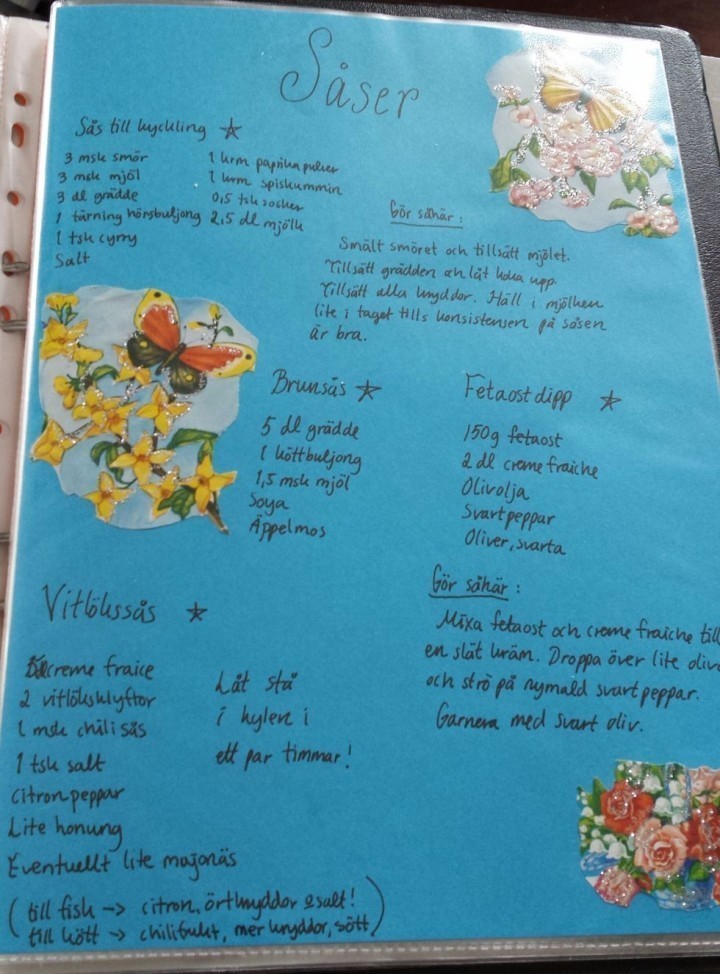 Såser
Sås till kyckling
3 msk smör
3 msk mjöl
3 dl grädde
1 tärning hönsbuljong
1 tsk curry
Salt
1 krm paprika pulver
1 krm spiskummin
0,5 tsk socker
2,5 dl mjölk
Gör såhär:
Smält smöret och tillsätt mjölet.
Tillsätt grädden och låt koka upp.
Tillsätt alla kryddor. Häll i mjölken
lite i taget tills konsistensen på såsen
är bra.
Brunsås
5 dl grädde
1 köttbuljong
1,5 msk mjöl
Soya
Äppelmos
Fetaost dipp
150g fetaost
2 dl creme fraiche
Olivolja
Svartpeppar
Oliver, svarta
Gör såhär:
Mixa fetaost och creme fraiche till
en slät kräm. Droppa över lite
och strö på nymald svartpeppar.
Garnera med svart oliv.
Vitlökssås
creme fraice
2 vitlöksklyftor
1 msk chili sås
1 tsk salt
Citronpeppar
Lite honung
Eventuellt lite majonäs
Låt stå
i kylen i
ett par timmar!
(till fisk -> citron, örtkryddor & salt!
till kött -> chilifrukt, mer kryddor, sött)